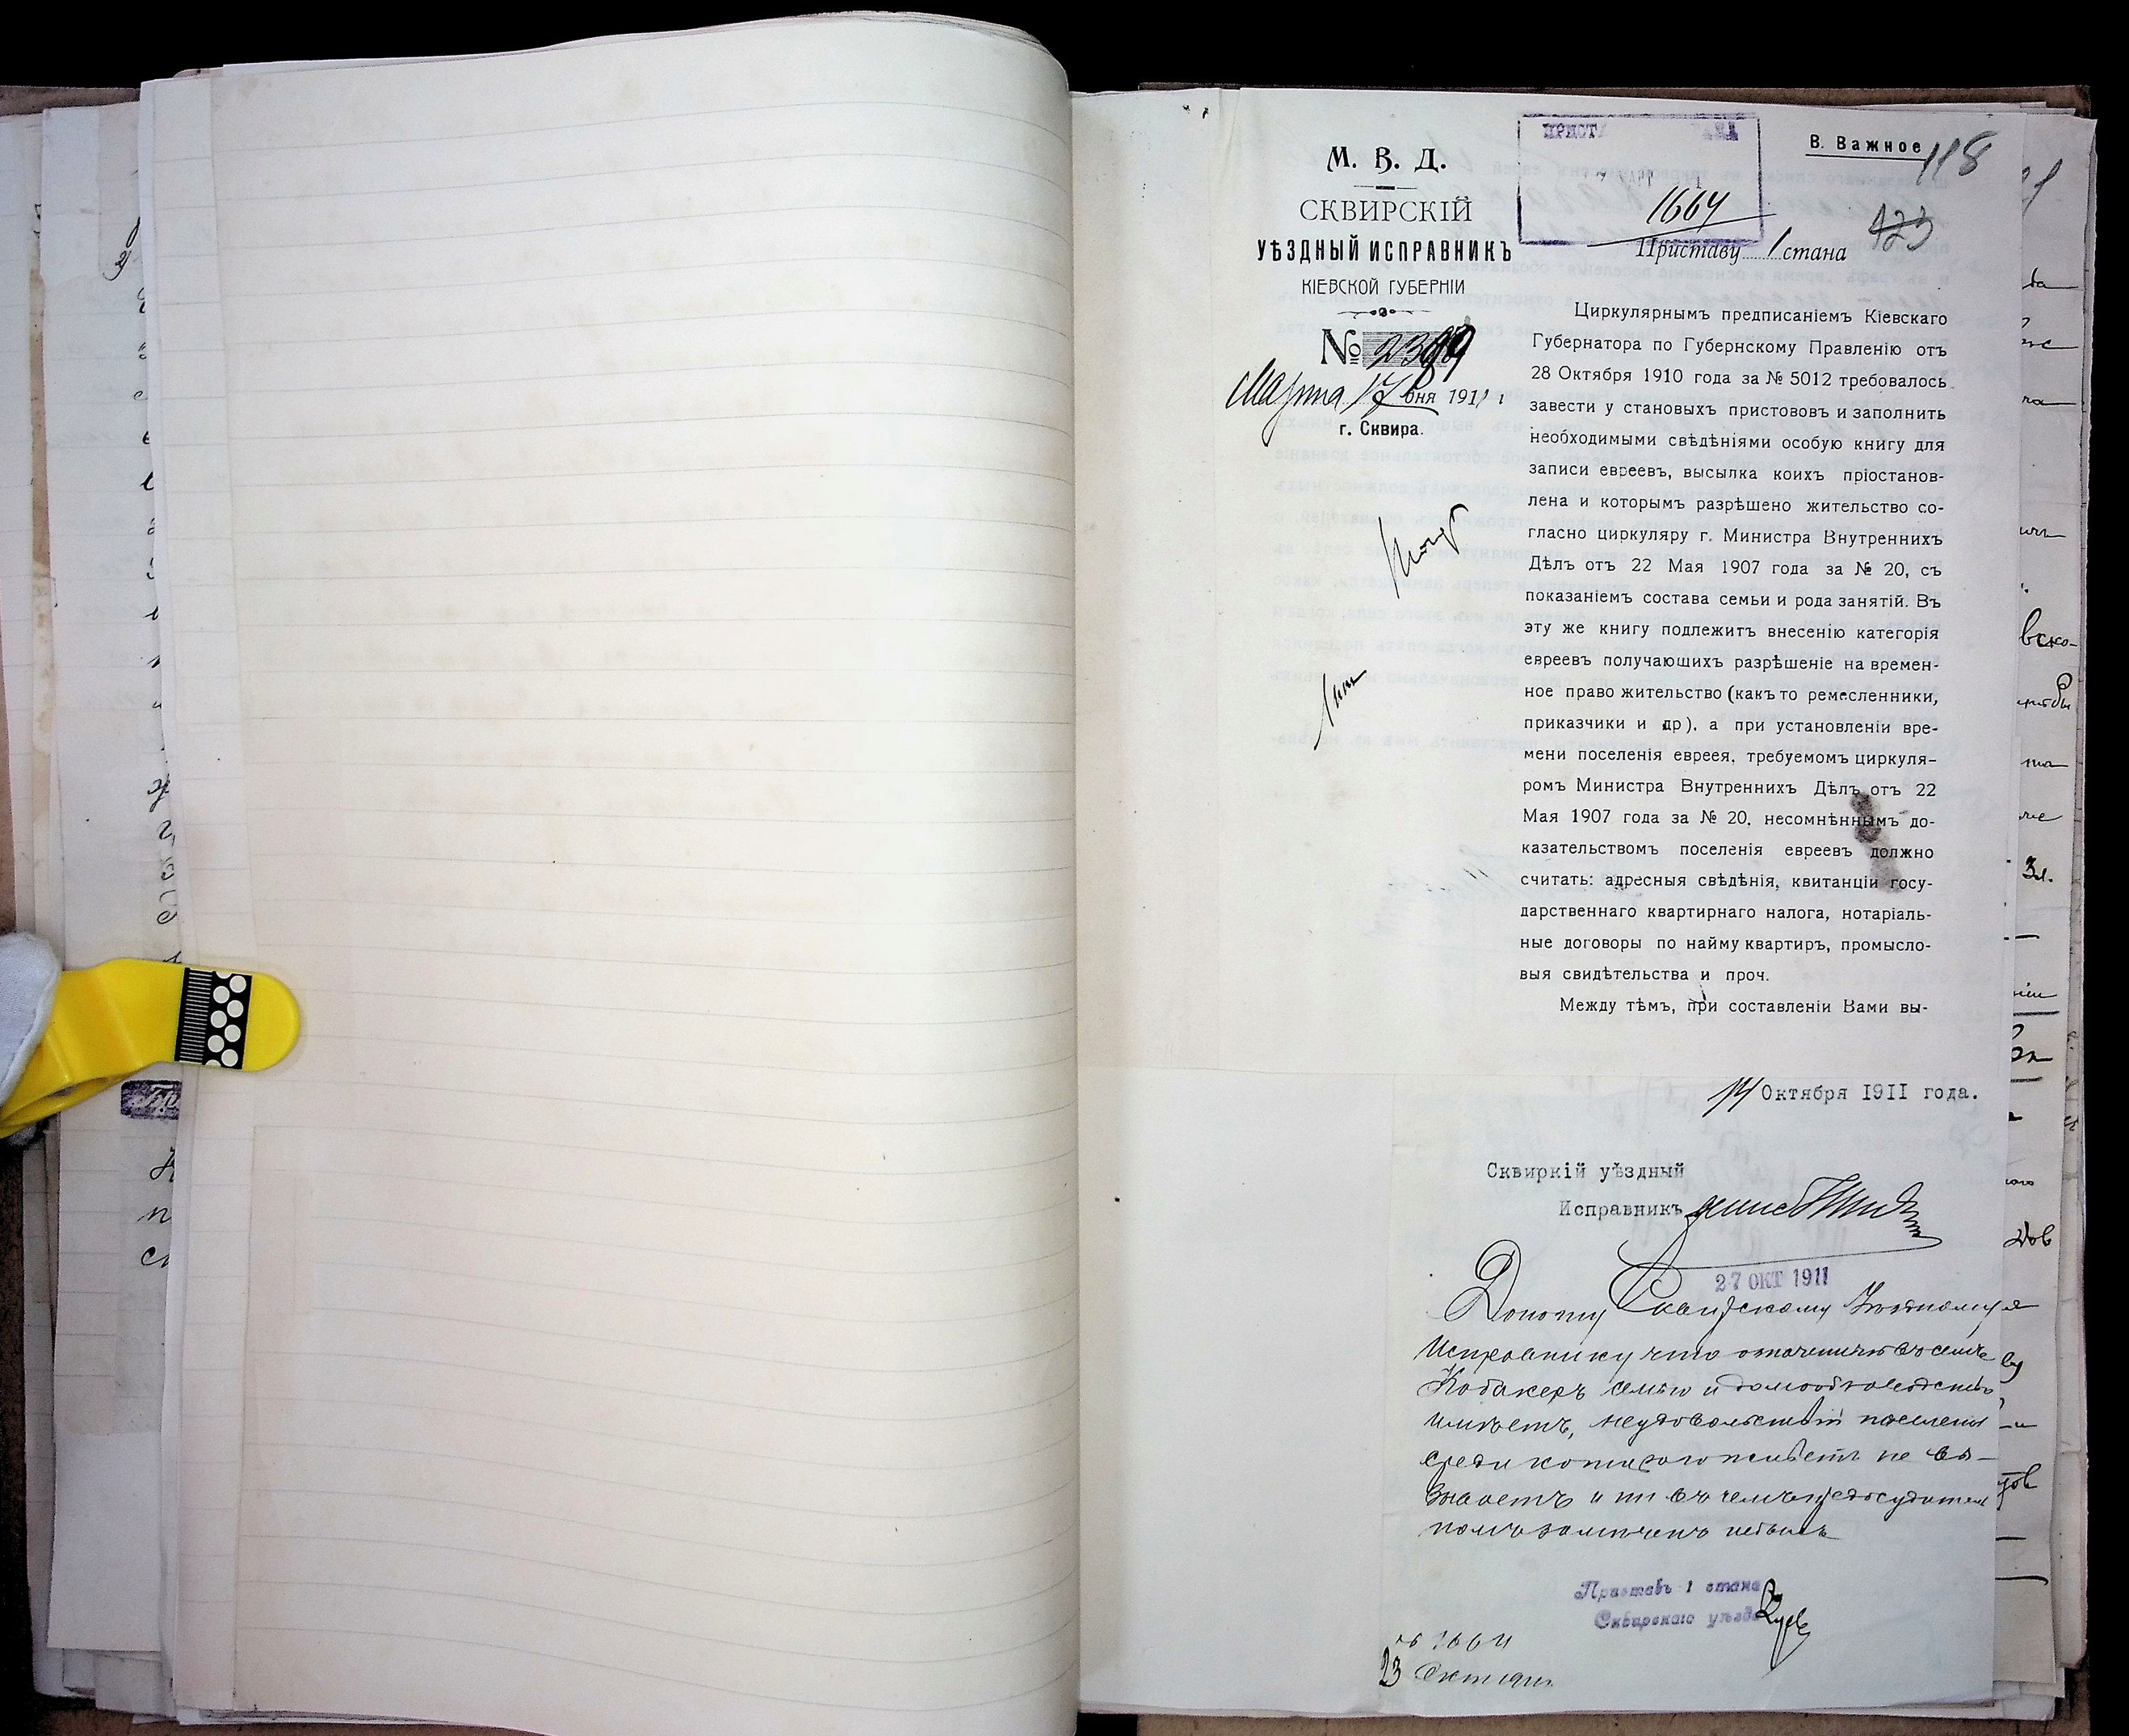 М. В. Д.
СКВИРСКІЙ
УѢЗДНЫЙ ИСПРАВНИКЪ
КІЕВСКОЙ ГУБЕРНІИ
№
Марта 17 дня 1911 г
г. Сквира.
ПРИСТ
1664
В. Важное
118
123
Приставу 1 стана
Циркулярнымъ предписаніемъ Кіевскаго
Губернатора по Губернскому Правленію отъ
28 Октября 1910 года за № 5012 требовалось
завести у становыхъ пристововъ и заполнить
необходимыми свѣдѣніями особую книгу для
записи евреевъ, высылка коихъ пріостанов-
лена и которымъ разрѣшено жительство со-
гласно циркуляру г. Министра Внутреннихъ
Дѣлъ отъ 22 Мая 1907 года за № 20, съ
показаніемъ состава семьи и рода занятій. Въ
эту же книгу подлежитъ внесенію категорія
евреевъ получающихъ разрѣшеніе на времен-
ное право жительство (какъ то ремесленники,
приказчики и др), а при установленіи вре-
мени поселенія евреея, требуемомъ циркуля-
ромъ Министра Внутреннихъ Дѣлъ отъ 22
Мая 1907 года за № 20, несомнѣннымъ до-
казательствомъ поселенія евреевъ должно
считать: адресныя свѣдѣнія, квитанціи госу-
дарственнаго квартирнаго налога, нотаріаль-
ные договоры по найму квартиръ, промысло-
выя свидѣтельства и проч.
Между тѣмъ, при составленіи Вами вы-
14 Октября 1911 года.
Сквиркій уѣздный
Исправникъ
27 ОКТ 1911
Доношу Сквирскому Уѣздному
Исправнику что означенный
семью и домообзаводство
имѣетъ, неудовольствій населенія
среди котораго живетъ не вы-
зываетъ и ни въ чемъ предосудитель
номъ замѣченъ небылъ
Приставъ 1 стана
Сквирскаго уѣзда
№ 1664
23 Окт 1911 г.